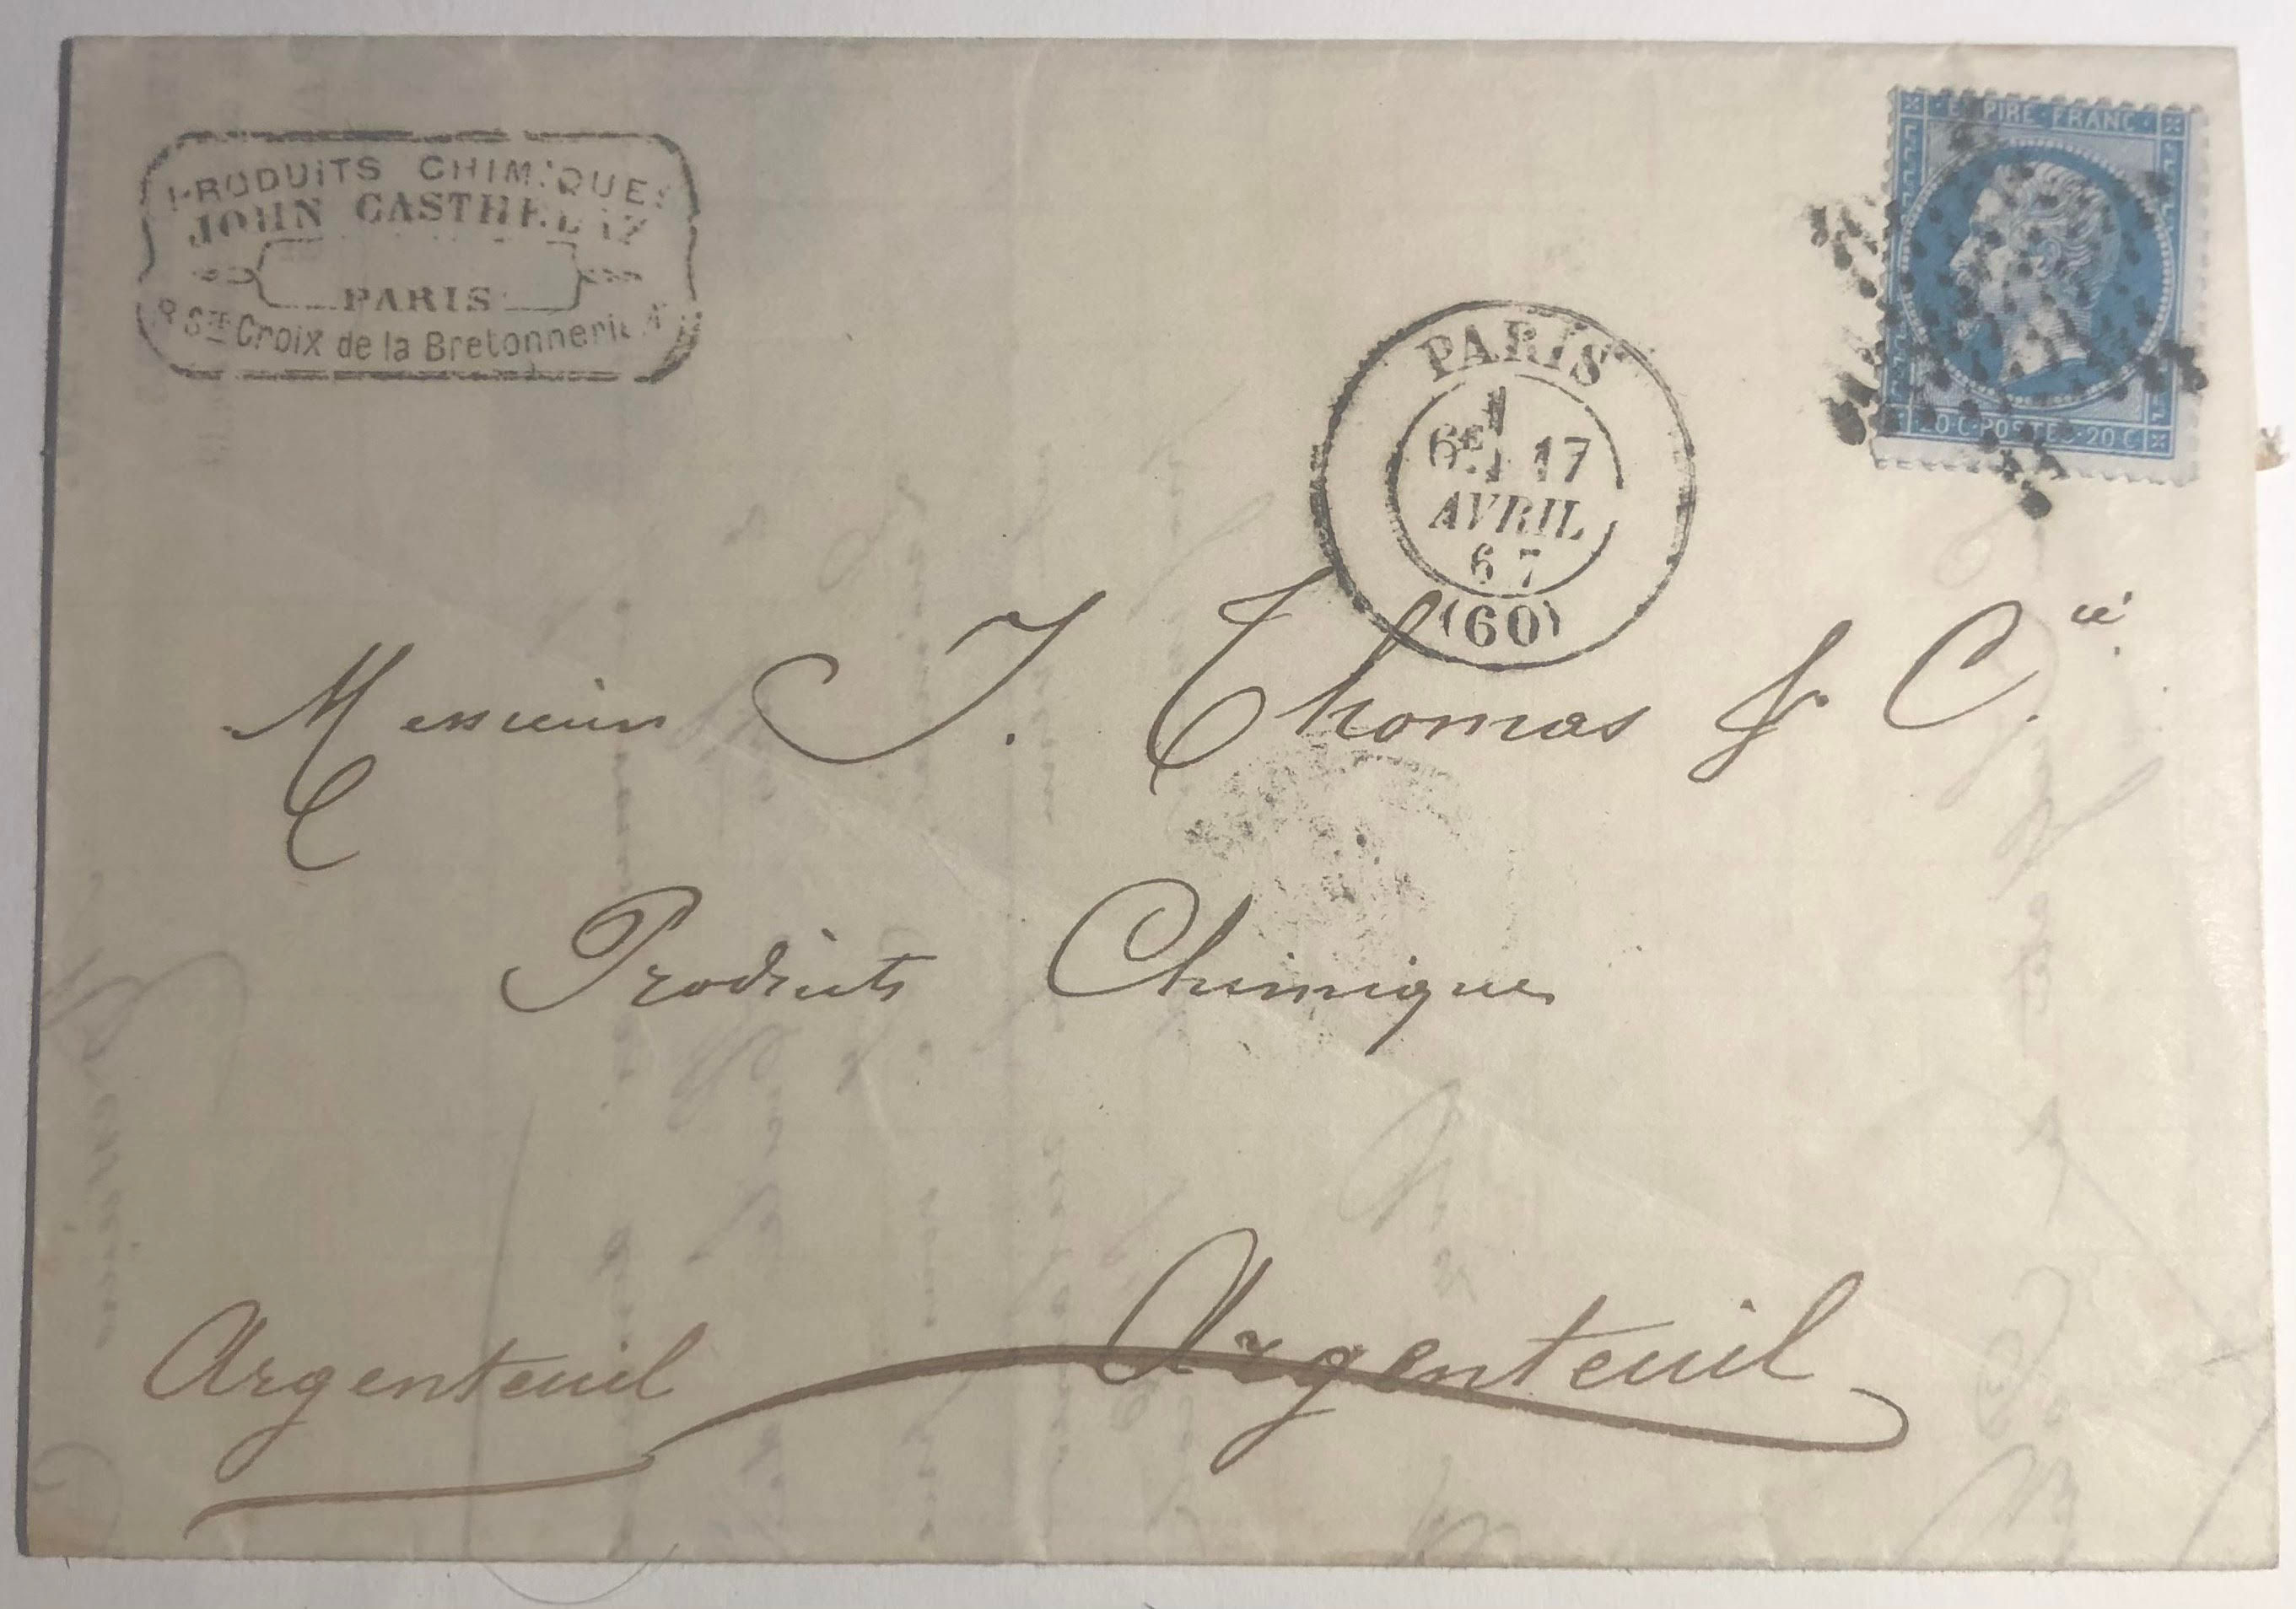 PRODUITS CHIMIQUES
JOHN CASTHELAZ
PARIS
R Ste Croix de la Bretonnerie
EMPIRE FRANC
20 C POSTES 20 C
PARIS
6E 17
AVRIL
67
(60)
Messieurs J. Thomas & Cie
Produits Chimiques
Argenteuil Argenteuil